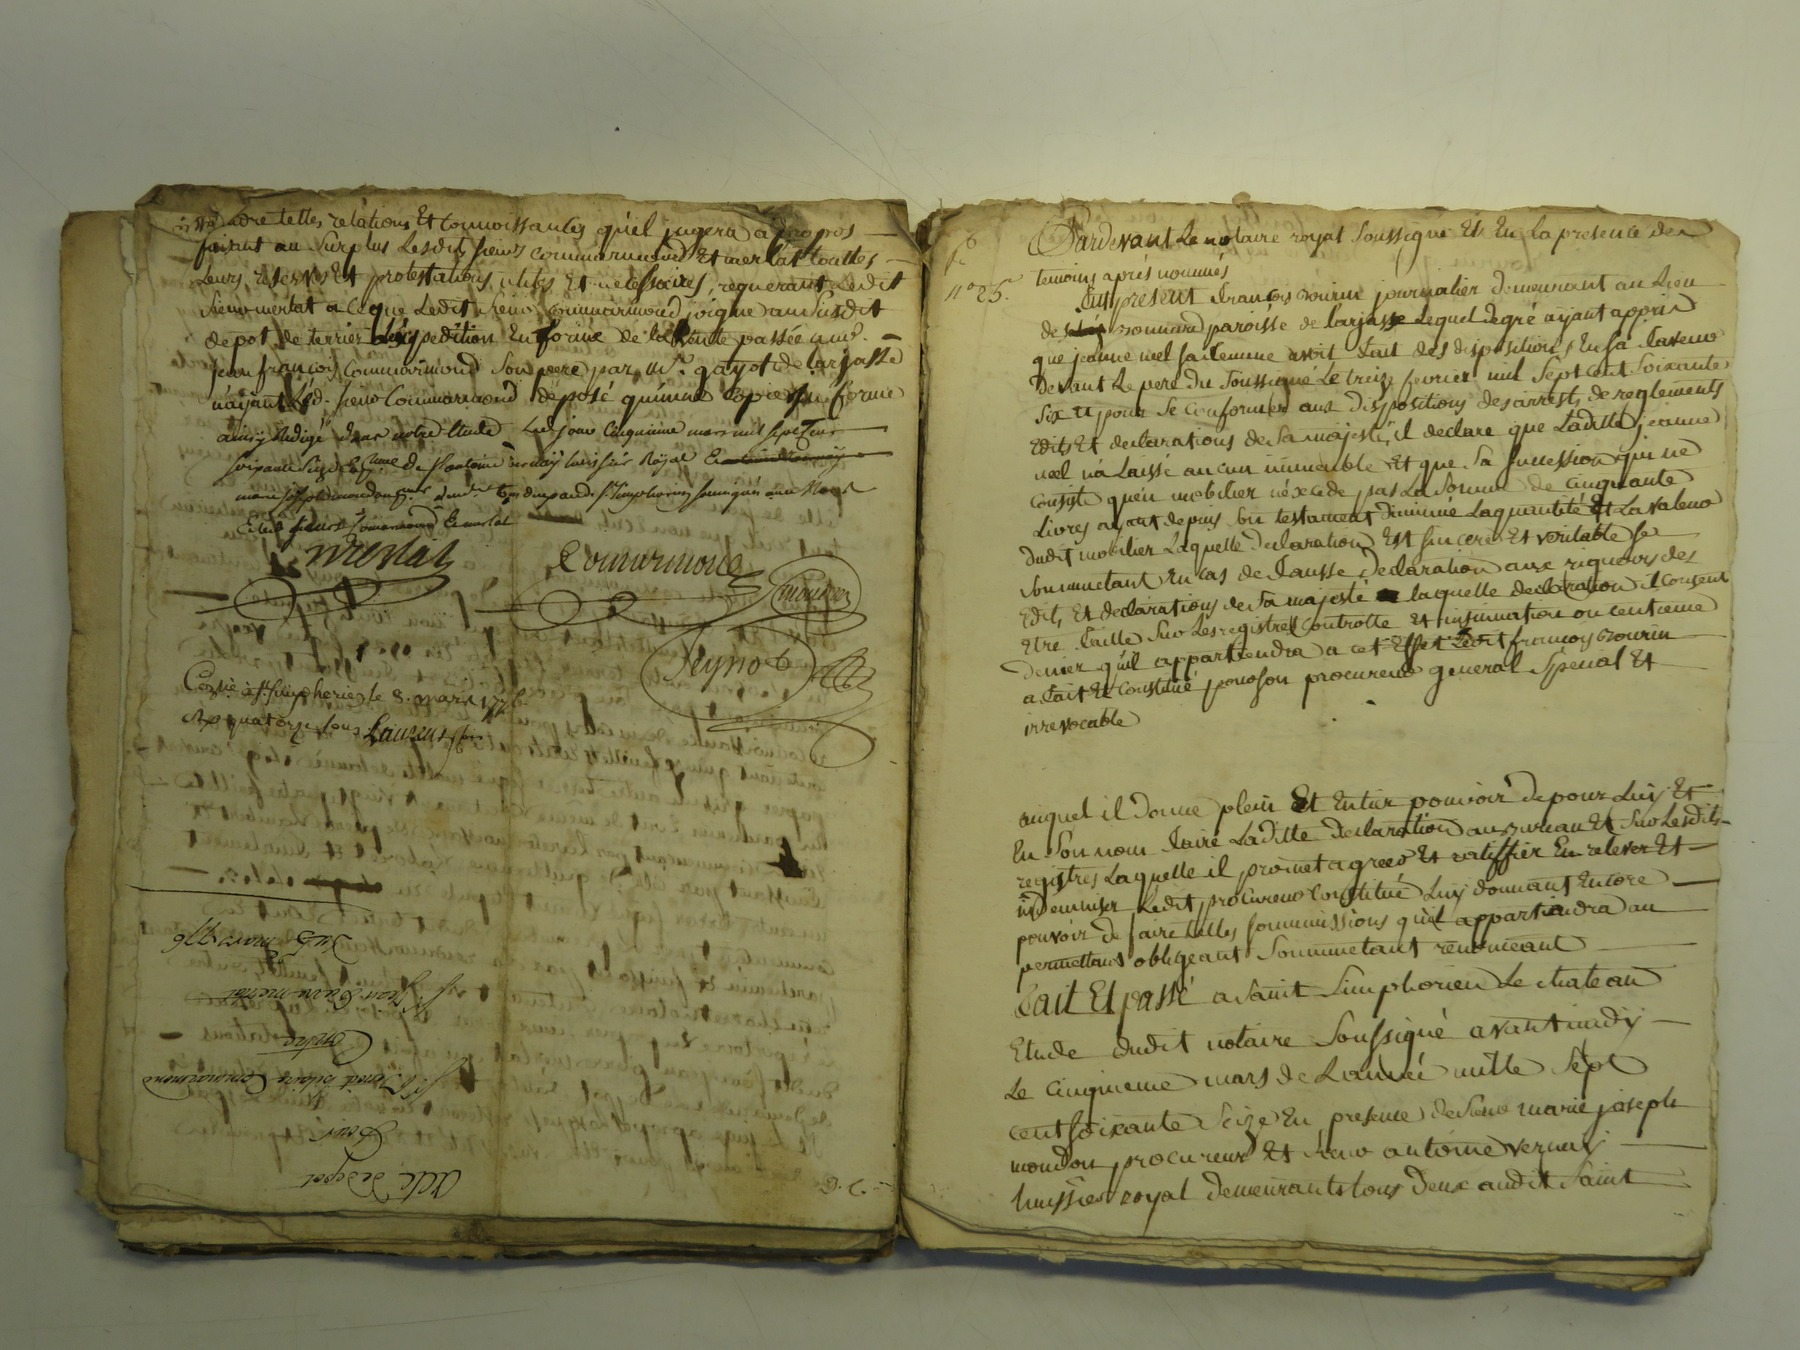 dre telles relations Et connoissances qu'il jugera a propos
faisant au surplus Lesdits sieurs commarmond Et merlat touttes
Leurs reserves Et protestations utiles Et necessaires, requerant Ledit
sieur merlat a ce que Ledit sieur commarmond joigne au susdit
depot de terrier L'expedition En forme de la Vente passée aud.
jean françois commarmond son pere par mr. gayot de larjasse
n'ayant Led. sieur Commarmond deposé qu'une copie En forme
ainsy Redigé dans notre Etude Le jour cinquieme mars mil sept Cent
soixante seize En presence de st antoine vernay huissier Royal
marie joseph mondon
Et les sieurs Commarmond Et merlat
Merlat
Commarmond
mondon
Peynot
Conlé a st simphorien le 8. mars 1776
Rx quatorze sous Laurenson
Acte de depot
Pour
Commarmond
Contre
Sieur merlat
Du 5 mars 1776
Pardevant Le notaire royal soussigné Et En La presence des
temoins aprés nommés
n° 25.
fut present françois bourin journalier demeurant au Lieu
de nonnard paroisse de larjasse Lequel degré ayant appris
que jeanne neel sa femme avoit fait des dispositions En sa faveur
Devant Le pere du soussigné Le treize fevrier mil sept cent soixante
six Et pour se conformer aux dispositions des arrests de reglements
Edits Et declarations de sa majesté, il declare que Laditte jeanne
neel n'a Laissé aucun immeuble Et que sa succession qui ne
consiste qu'en mobilier n'excede pas La somme de cinquante
Livres ayant depuis son testament diminué La quantité Et La valeur
dudit mobilier Laquelle declaration Est sincere Et veritable se
soummetant En cas de fausse declaration aux rigueurs des
Edits Et declarations de sa majesté laquelle declaration il consent
Etre faitte sur Les registres Controlle Et insinuation ou centieme
denier qu'il appartiendra a cet Effet Ledit françois bourin
a fait Et Constitué pour son procureur general special Et
irrevocable
auquel il donne plein Et Entier pouvoir de pour Luy Et
En son nom faire Laditte declaration au bureau Et sur Lesdits
registres Laquelle il promet agreer Et ratiffier En relever Et
indemniser Ledit procureur constitué Luy donnant Encore
pouvoir de faire telles soummissions qu'il appartiendra au
permettans obligeant soummetant renonceant
fait Et passé a saint simphorien Le chateau
Etude dudit notaire soussigné avant midy
Le cinquieme mars de L'année mille sept
cent soixante seize En presence de sieur marie joseph
mondon procureur Et sieur antoine vernay
huissier royal demeurants tous deux audit saint